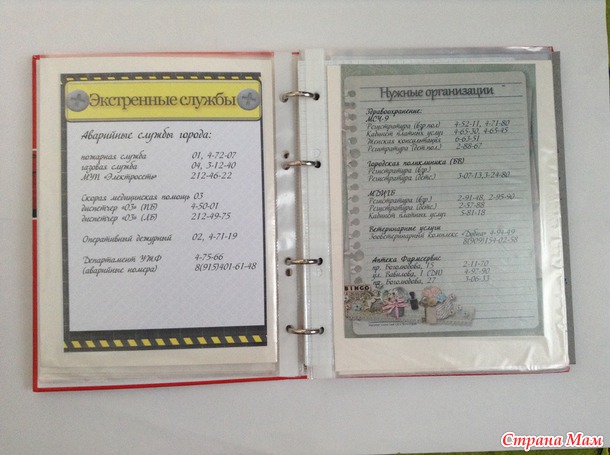 Экстренные службы
Аварийные службы города:
пожарная служба 01, 4-72-07
газовая служба 04, 3-12-40
МУП «Электросеть» 212-46-22
Скорая медицинская помощь 03
диспетчер «03» (ПБ) 4-50-01
диспетчер «03» (ЛБ) 212-49-75
Оперативный дежурный 02, 4-71-19
Департамент 4-75-66
(аварийные номера) 8(915)401-61-48
Нужные организации
Здравоохранение:
МСЧ-9
Регистратура (взр.пол) 4-52-11, 4-71-80
Кабинет платных услуг 4-65-30, 4-65-45
Женская консультация 6-63-51
Регистратура (дет.пол) 2-88-67
Городская поликлиника (БВ)
Регистратура (взр.) 3-07-13, 3-24-80
Регистратура (детс.)
Регистратура (взр.) 2-91-48, 2-95-90
Регистратура (детс.) 2-57-88
Кабинет платных услуг 5-81-18
Ветеринарные услуги
Зооветеринарный комплекс 4-94-49
8(909)154-02-58
Аптека Фармсервис
пр. Боголюбова, 15 2-11-70
ул. Вавилова, 1 4-97-90
пр. Боголюбова, 27 3-06-33
BINGO
Страна Мам